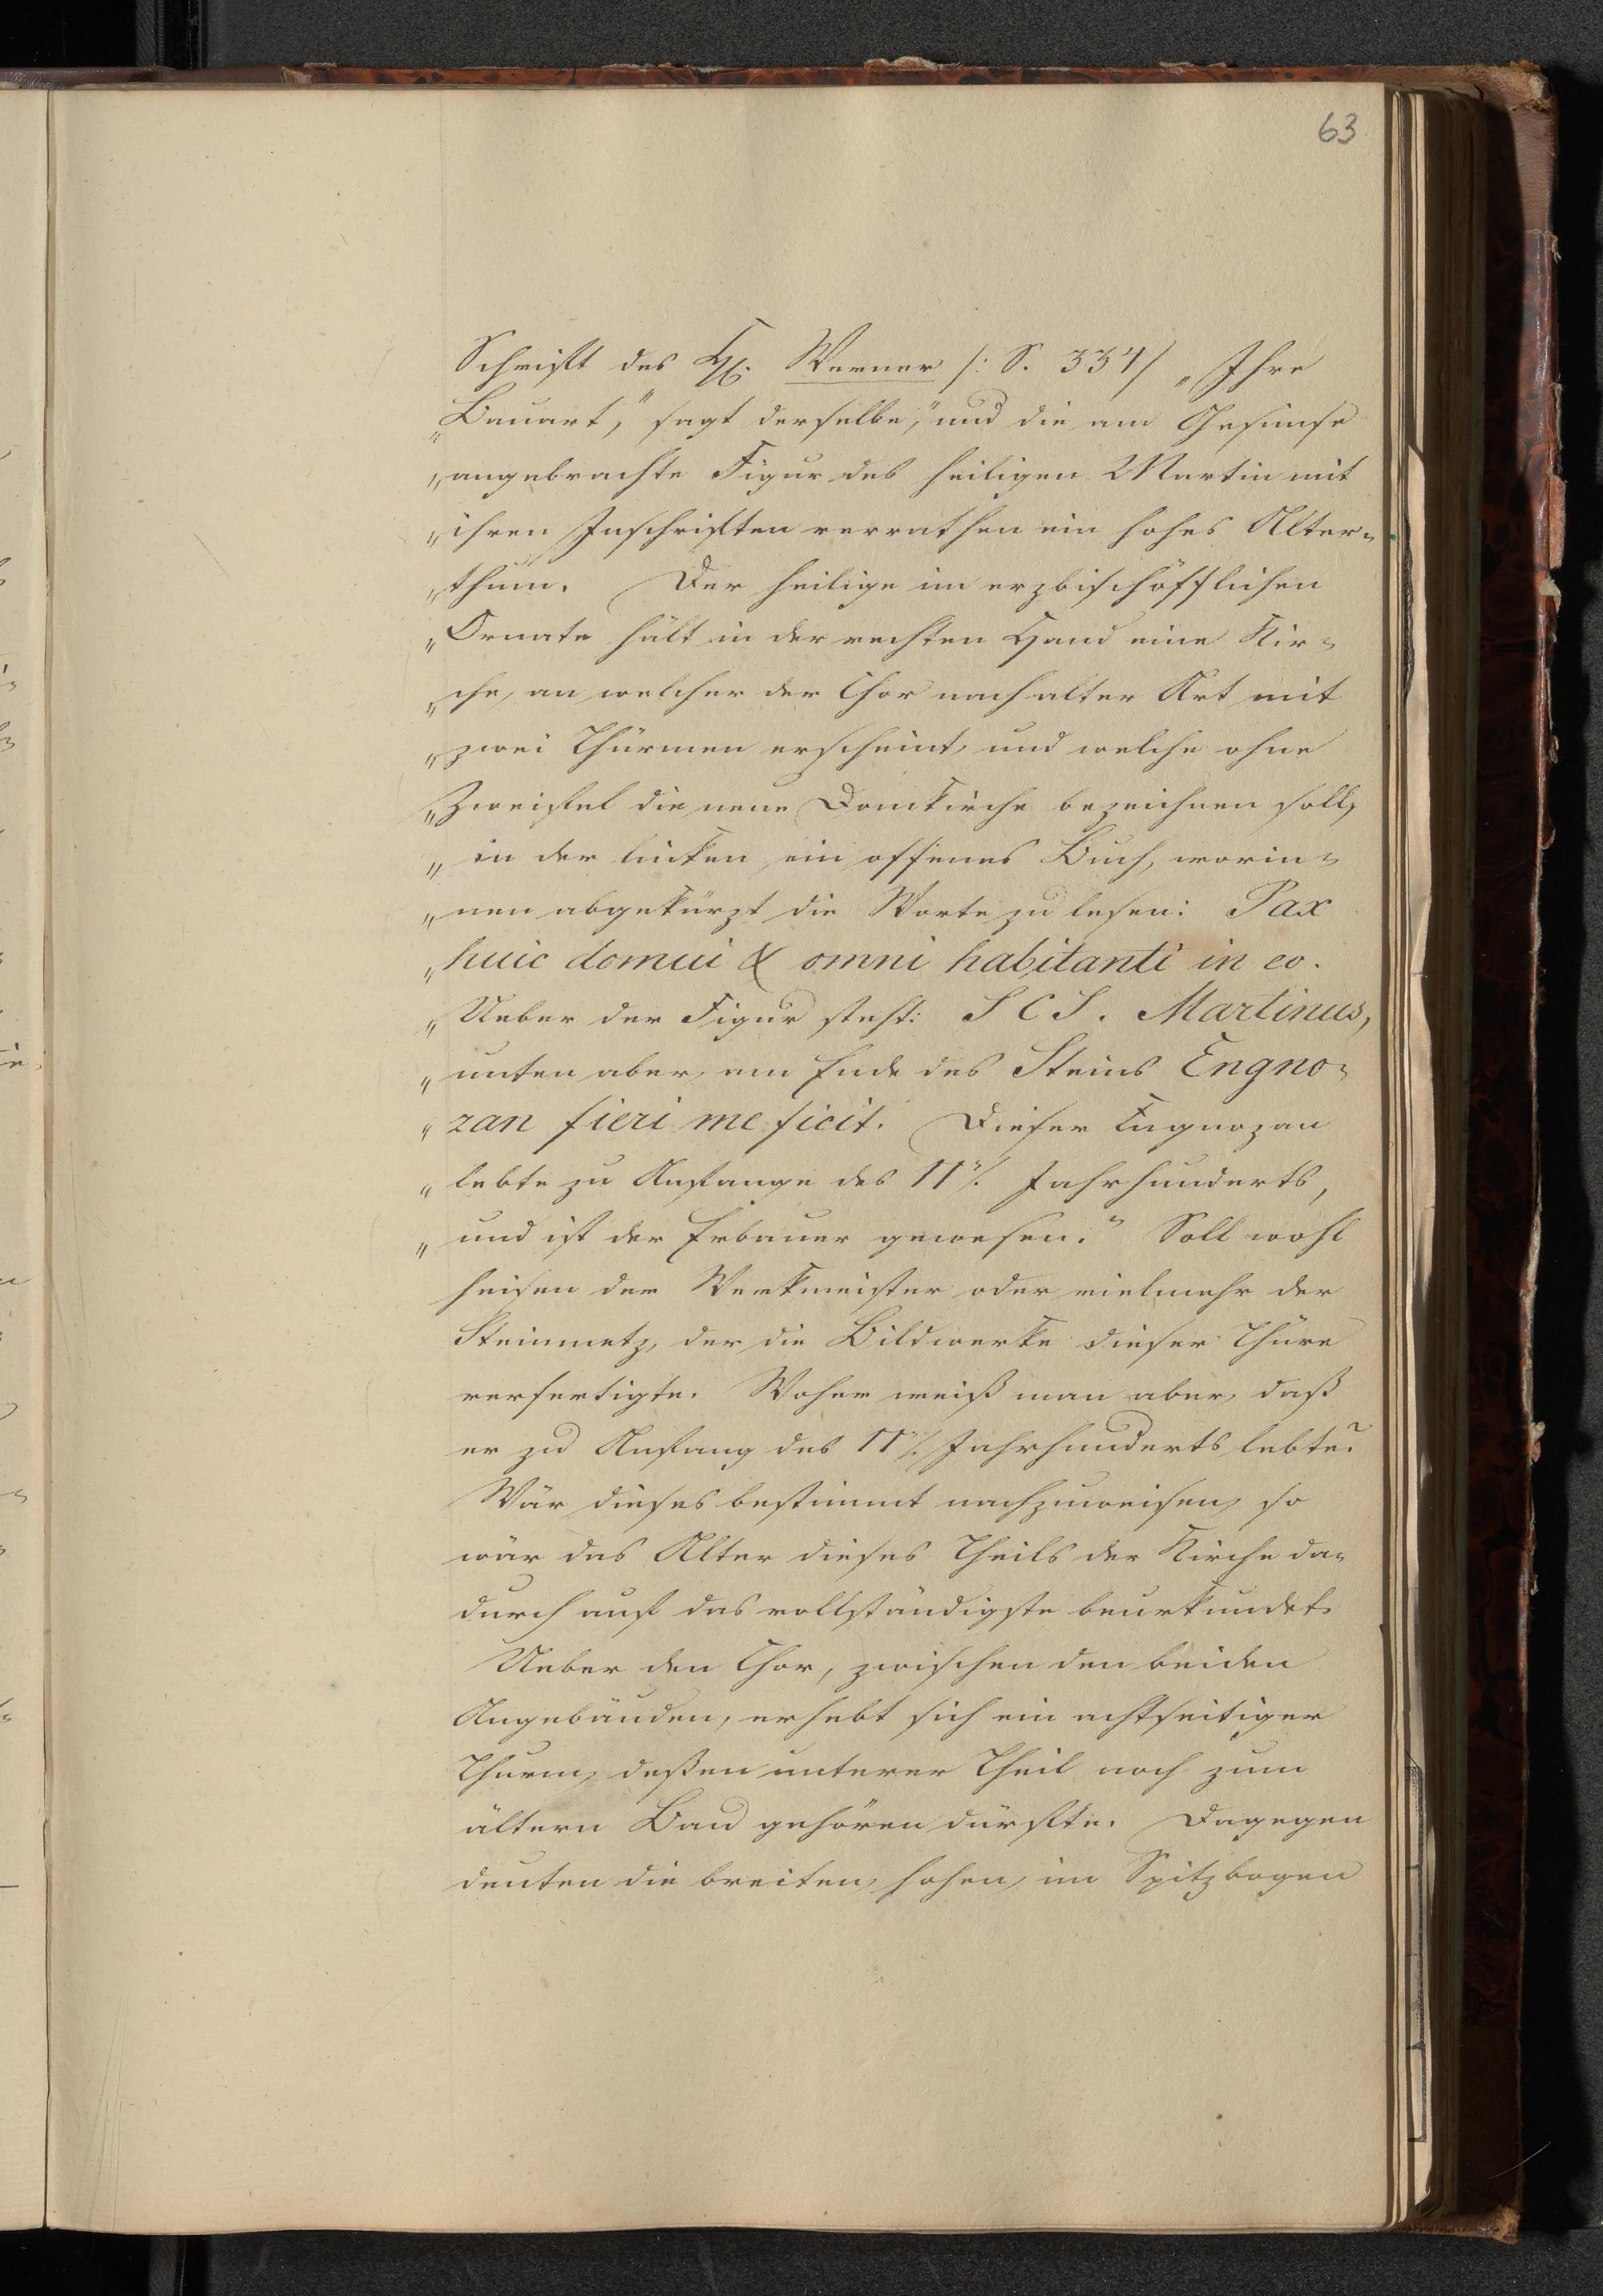 63
Schrift des H. Werner /: S. 334/ „Ihre
„Bauart," sagt derselbe, „und die am Gesimse
„angebrachte Figur des heiligen Martin mit
„ihren Inschriften verrathen ein hohes Alter=
„thum. Der heilige im erzbischöfflichen
„Ornate hält in der rechten Hand eine Kir=
„che, an welcher der Chor nach alter Art mit
„zwei Thürmen erscheint, und welche ohne
„Zweifel die neue Domkirche bezeichnen soll,
„in der linken ein offenes Buch, worin=
„nen abgekürzt die Worte zu lesen: Pax
„huic domui & omni habitanti in eo.
„Ueber der Figur steht: S C S. Martinus,
„unten aber, am Ende des Steins Engno=
„zan fieri me ficit. Dieser Engnozan
„lebte zu Anfange des 11. Jahrhunderts,
„und ist der Erbauer gewesen." Soll wohl
heisen der Werkmeister oder vielmehr der
Steinmetz, der die Bildwerke dieser Thüre
verfertigte. Woher weiß man aber, daß
er zu Anfang des 11. Jahrhunderts lebte?
Wär dieses bestimmt nachzuweisen, so
wär das Alter dieses Theils der Kirche da=
durch auf das vollständigste beurkundet.
Ueber den Chor, zwischen den beiden
Angebäuden, erhebt sich ein achtseitiger
Thurm, deßen unterer Theil noch zum
ältern Bau gehören dürfte. Dagegen
deuten die breiten, hohen, im Spitzbogen